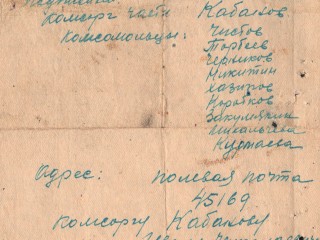 комсорг части Кабаков
Комсомольцы: Чистов
Торбеев
Черников
Никитин
Хазиров
Коробков
Закумянин
Михальчева
Курмаева
Адрес: полевая почта
45169
комсоргу Кабакову